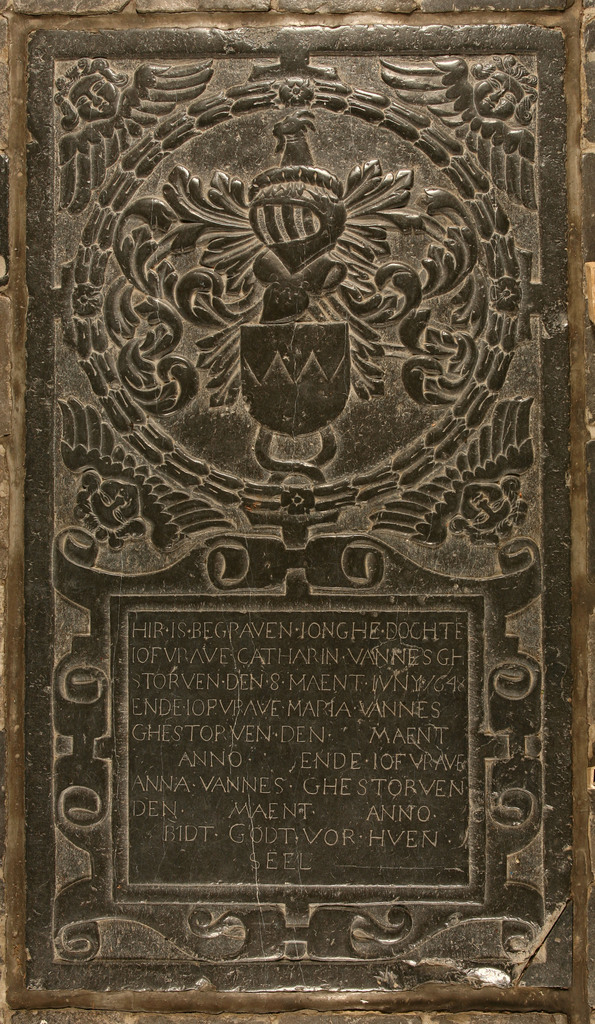 HIR·IS·BEGRAVEN·IONGHE·DOCHTE
IOFVRAVE·CATHARIN·VANNES GH
STORVEN·DEN·8·MAENT·IVNY·164
ENDE·IOFVRAVE·MARIA·VANNES
GHESTORVEN·DEN· MAENT
ANNO· ENDE·IOFVRAVE
ANNA·VANNES· GHESTORVEN
DEN· MAENT· ANNO·
BIDT·GODT·VOR·HVEN·
SEEL